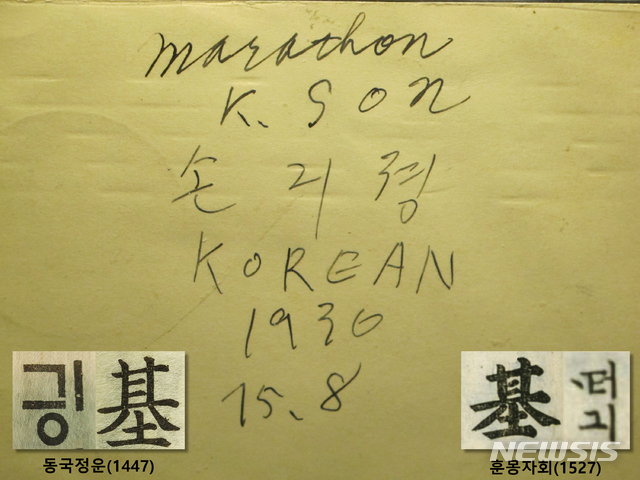 marathon
K. SON
손 긔 졍
KOREAN
1936
15.8
긩 基
동국정운(1447)
基 터 긔
훈몽자회(1527)
NEWSIS